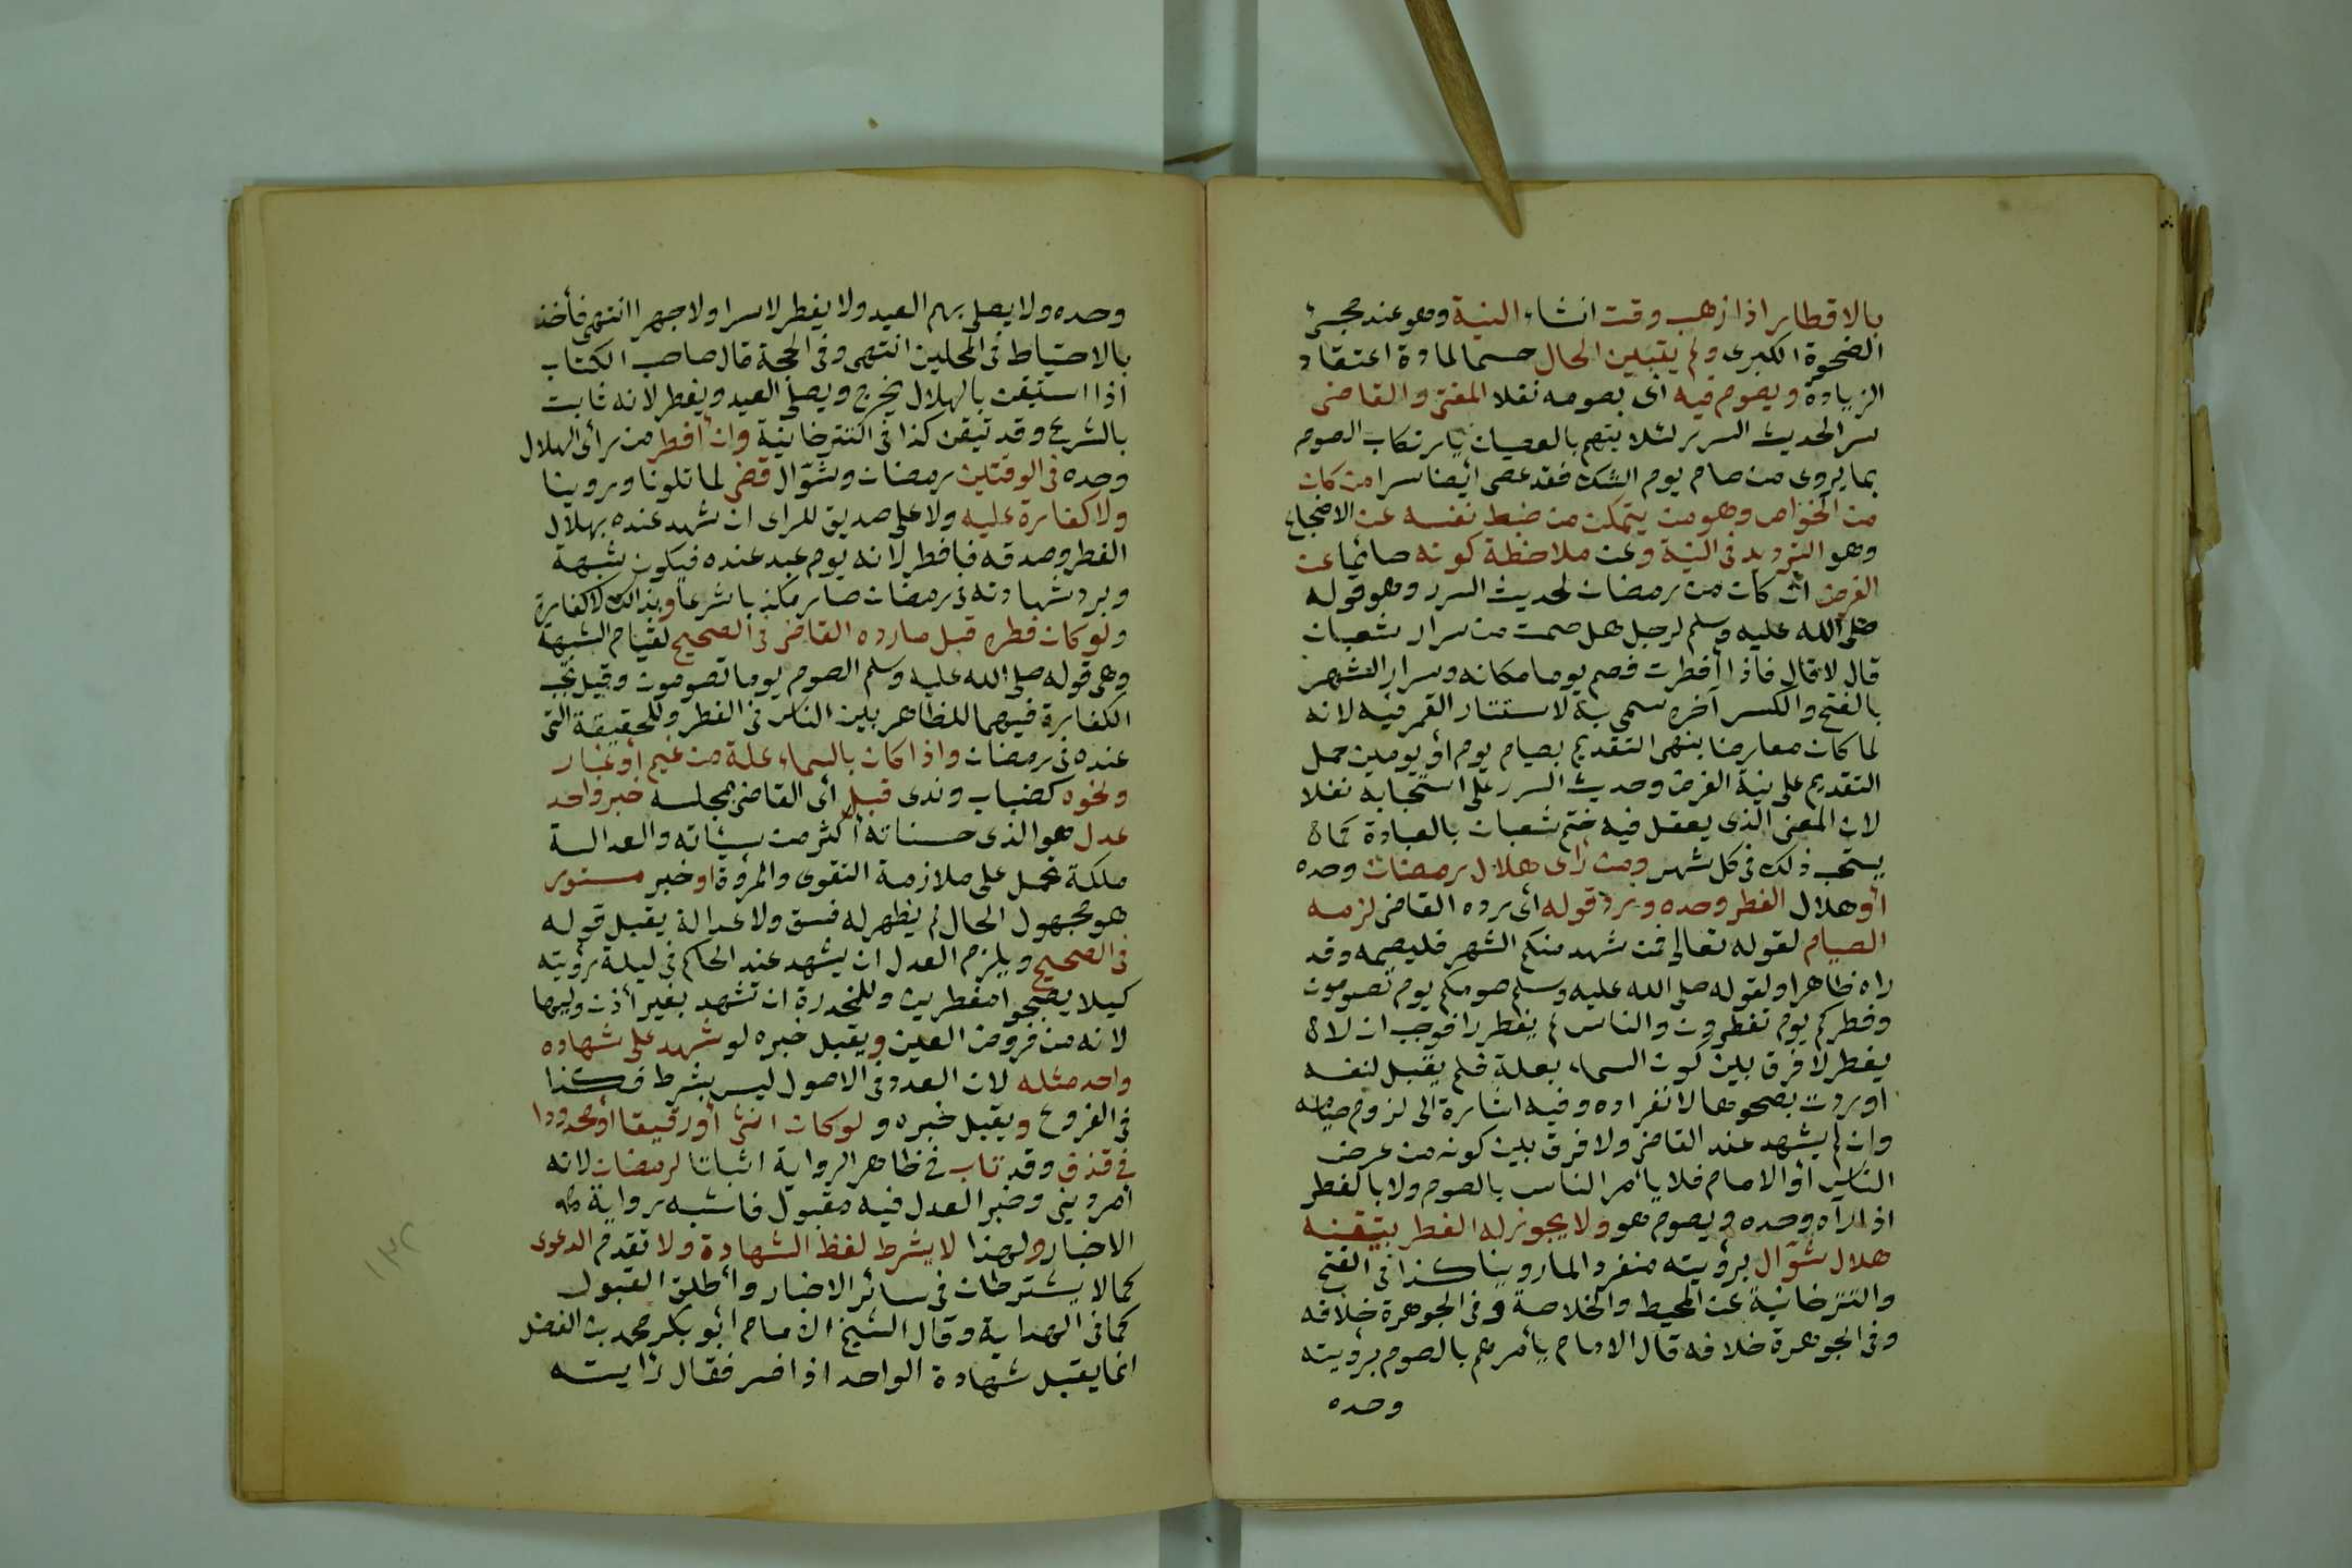 بالافطار اذا ذهب وقت انشاء النية وهو عند مجئ
الضحوة الكبرى ولم يتبين الحال حسما لمادة اعتقاد
الزيادة ويصوم فيه اى بصومه نفلا المفتى والقاضى
سر الحديث السرر لئلا يتهم بالعصيان بارتكاب الصوم
بما يروى من صام يوم الشك فقد عصى أيضا سرا من كان
من الخواص وهو من يتمكن من ضبط نفسه عن الاضجاع
وهو الترديد فى النية وعن ملاحظة كونه صائما عن
الفرض ان كان من رمضان لحديث السرر وهو قوله
صلى الله عليه وسلم لرجل هل صمت من سرار شعبان
قال لا قال فاذا أفطرت فصم يوما مكانه وسرار الشهر
بالفتح والكسر آخره سمى به لاستتار القمر فيه لانه
لما كان معارضا بنهى التقديم بصيام يوم أو يومين حمل
التقديم على نية الفرض وحديث السرر على استحبابه نفلا
لان المعنى الذى يعقل فيه ختم شعبان بالعبادة كما
يستحب ذلك فى كل شهر ومن رأى هلال رمضان وحده
أو هلال الفطر وحده ورد قوله أى رده القاضى لزمه
الصيام لقوله تعالى فمن شهد منكم الشهر فليصمه وقد
راه ظاهرا ولقوله صلى الله عليه وسلم صومكم يوم تصومون
وفطركم يوم تفطرون والناس لم يفطروا فوجب ان لا
يفطر لا فرق بين كون السماء بعلة فلم يقبل لفسقه
اوردت بصحوها لانفراده وفيه اشارة الى لزوم صيامه
وان لم يشهد عند القاضى ولا فرق بين كونه من عرض
الناس أو الامام فلا يأمر الناس بالصوم ولا بالفطر
اذا راه وحده ويصوم هو ولا يجوز له الفطر بتيقنه
هلال شوّال برؤيته منفردا لما روينا كذا فى الفتح
والتترخانية عن المحيط والخلاصة وفى الجوهرة خلافه
وفى الجوهرة خلافه قال الامام يأمرهم بالصوم برؤيته
وحده
وحده ولا يصلى بهم العيد ولا يفطر لا سرا ولا جهرا انتهى فأخذ
بالاحتياط فى المحلين انتهى وفى الحجة قال صاحب الكتاب
اذا استيقن بالهلال يخرج ويصلى العيد ويفطر لانه ثابت
بالشرع وقد تيقن كذا فى التترخانية وان أفطر من رأى الهلال
وحده فى الوقتين رمضان وشوّال قضى لما تلونا وروينا
ولا كفارة عليه ولا على صديق للراى ان شهد عنده بهلال
الفطر وصدقه فافطر لانه يوم عيد عنده فيكون شبهة
وبرد شهادته فى رمضان صار مكذبا شرعا وبذالك لا كفارة
ولو كان فطره قبل ما رده القاضى فى الصحيح لقيام الشبهة
وهى قوله صلى الله عليه وسلم الصوم يوما تصومون وقيل تجب
الكفارة فيهما للظاهر بين الناس فى الفطر وللحقيقة التى
عنده فى رمضان واذا كان بالسماء علة من غيم أو غبار
ونحوه كضباب وندى قبل أى القاضى بمجلسه خبر واحد
عدل هو الذى حسناته أكثر من سيئاته والعدالة
ملكة تحمل على ملازمة التقوى والمروة او خبر مستور
هو مجهول الحال لم يظهر له فسق ولا عدالة يقبل قوله
فى الصحيح ويلزم العدل ان يشهد عند الحاكم فى ليلة رؤيته
كيلا يصبحوا مفطرين وللمخدرة ان تشهد بغير أذن وليها
لانه من فروض العين ويقبل خبره لو شهد على شهاده
واحد مثله لان العدد فى الاصول ليس بشرط فكذا
فى الفروع ويقبل خبره ولو كان انثى أو رقيقا أو محدودا
فى قذف وقد تاب فى ظاهر الرواية اثباتا لرمضان لانه
أمر دينى وخبر العدل فيه مقبول فاشبه رواية
الاخبار ولهذا لا يشرط لفظ الشهادة ولا تقدم الدعوى
كما لا يشترطان فى سائر الاخبار وأطلق القبول
كما فى الهداية وقال الشيخ الامام أبو بكر محمد بن الفضل
انما يقبل شهادة الواحد اذا فسر فقال رأيته